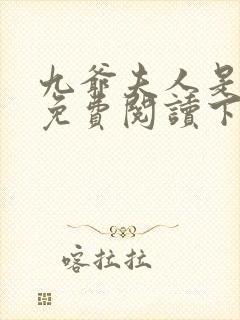 九爺夫人是
免費閱讀下
喀拉拉